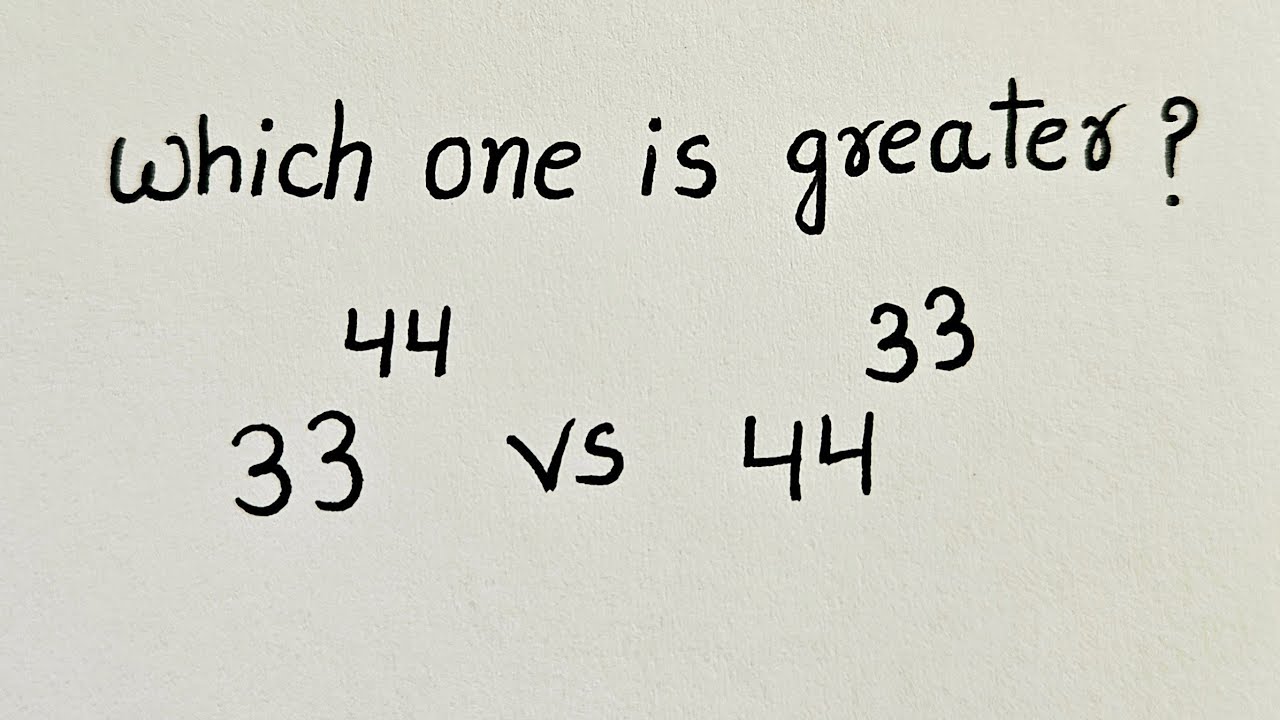 Which one is greater?
33⁴⁴ vs 44³³